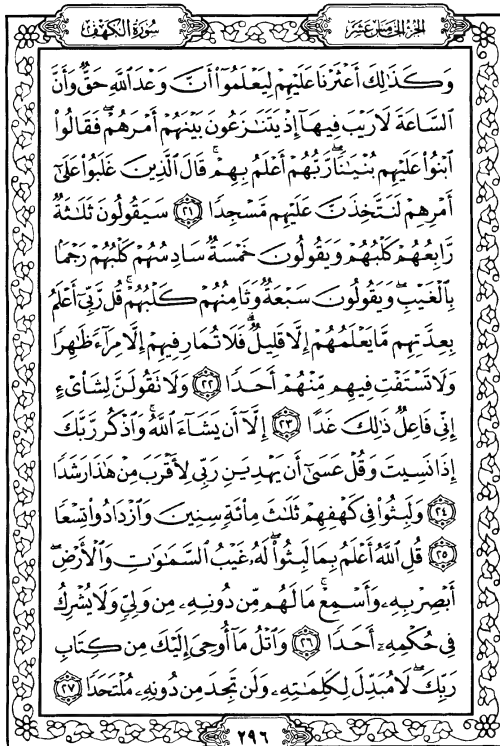 سُورَةُ الكَهْفِ الجُزْءُ الخَامِسُ عَشَرَ
وَكَذَٰلِكَ أَعْثَرْنَا عَلَيْهِمْ لِيَعْلَمُوٓا۟ أَنَّ وَعْدَ ٱللَّهِ حَقٌّ وَأَنَّ
ٱلسَّاعَةَ لَا رَيْبَ فِيهَآ إِذْ يَتَنَٰزَعُونَ بَيْنَهُمْ أَمْرَهُمْ ۖ فَقَالُوا۟
ٱبْنُوا۟ عَلَيْهِم بُنْيَٰنًا ۖ رَّبُّهُمْ أَعْلَمُ بِهِمْ ۚ قَالَ ٱلَّذِينَ غَلَبُوا۟ عَلَىٰٓ
أَمْرِهِمْ لَنَتَّخِذَنَّ عَلَيْهِم مَّسْجِدًا ٢١ سَيَقُولُونَ ثَلَٰثَةٌ
رَّابِعُهُمْ كَلْبُهُمْ وَيَقُولُونَ خَمْسَةٌ سَادِسُهُمْ كَلْبُهُمْ رَجْمًۢا
بِٱلْغَيْبِ ۖ وَيَقُولُونَ سَبْعَةٌ وَثَامِنُهُمْ كَلْبُهُمْ ۚ قُل رَّبِّىٓ أَعْلَمُ
بِعِدَّتِهِم مَّا يَعْلَمُهُمْ إِلَّا قَلِيلٌ ۗ فَلَا تُمَارِ فِيهِمْ إِلَّا مِرَآءً ظَٰهِرًا
وَلَا تَسْتَفْتِ فِيهِم مِّنْهُمْ أَحَدًا ٢٢ وَلَا تَقُولَنَّ لِشَا۟ىْءٍ
إِنِّى فَاعِلٌ ذَٰلِكَ غَدًا ٢٣ إِلَّآ أَن يَشَآءَ ٱللَّهُ ۚ وَٱذْكُر رَّبَّكَ
إِذَا نَسِيتَ وَقُلْ عَسَىٰٓ أَن يَهْدِيَنِ رَبِّى لِأَقْرَبَ مِنْ هَٰذَا رَشَدًا
٢٤ وَلَبِثُوا۟ فِى كَهْفِهِمْ ثَلَٰثَ مِا۟ئَةٍ سِنِينَ وَٱزْدَادُوا۟ تِسْعًا
٢٥ قُلِ ٱللَّهُ أَعْلَمُ بِمَا لَبِثُوا۟ ۖ لَهُۥ غَيْبُ ٱلسَّمَٰوَٰتِ وَٱلْأَرْضِ ۖ
أَبْصِرْ بِهِۦ وَأَسْمِعْ ۚ مَا لَهُم مِّن دُونِهِۦ مِن وَلِىٍّ وَلَا يُشْرِكُ
فِى حُكْمِهِۦٓ أَحَدًا ٢٦ وَٱتْلُ مَآ أُوحِىَ إِلَيْكَ مِن كِتَابِ
رَبِّكَ ۖ لَا مُبَدِّلَ لِكَلِمَٰتِهِۦ وَلَن تَجِدَ مِن دُونِهِۦ مُلْتَحَدًا ٢٧
٢٩٦